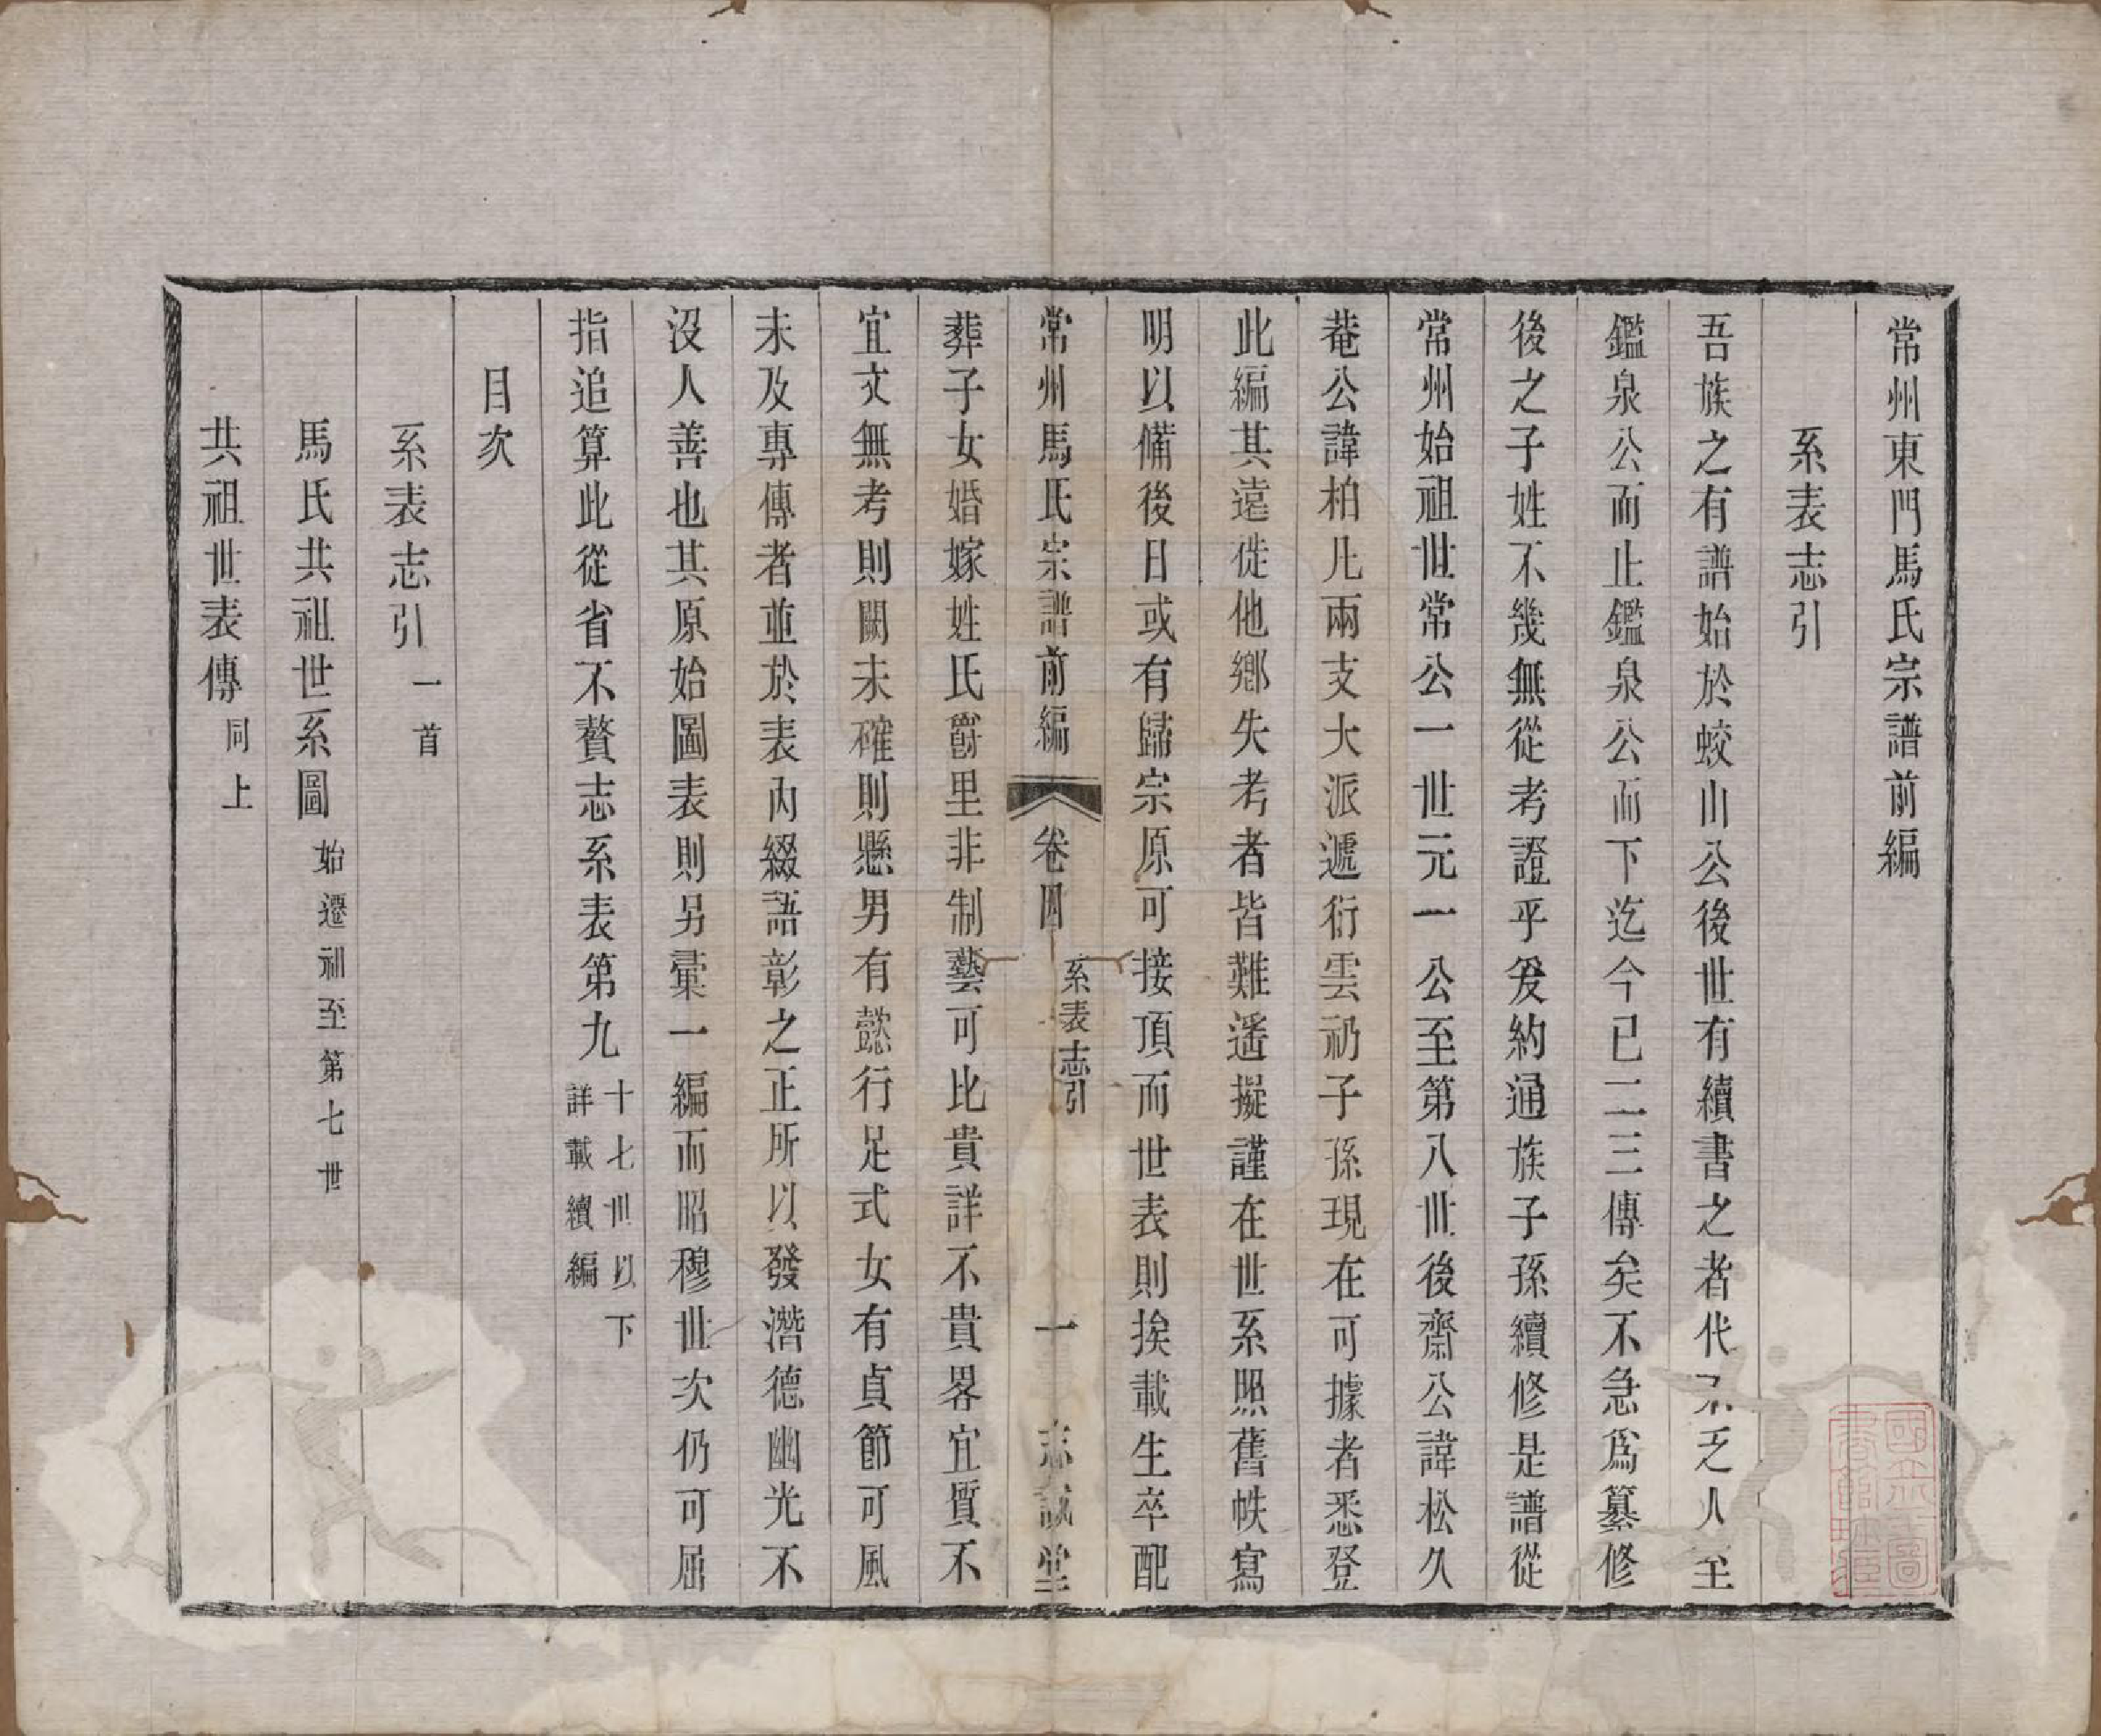 常州東門馬氏宗譜前編
系表志引
吾族之有譜始於蛟山公後世有續書之者代不乏人至
鑑泉公而止鑑泉公而下迄今已二三傳矣不急爲纂修
後之子姓不幾無從考證乎爰約通族子孫續修是譜從
常州始祖世常公一世元一公至第八世後齋公諱松久
菴公諱柏凡兩支大派遞衍雲礽子孫現在可據者悉登
此編其遠徙他鄉失考者皆難遥擬謹在世系照舊帙寫
明以備後日或有歸宗原可接頂而世表則挨載生卒配
常州馬氏宗譜前編 卷四 系表志引 一 志誠堂
葬子女婚嫁姓氏爵里非制藝可比貴詳不貴畧宜質不
宜文無考則闕未確則懸男有懿行足式女有貞節可風
未及專傳者並於表內綴語彰之正所以發潛德幽光不
沒人善也其原始圖表則另彙一編而昭穆世次仍可屈
指追算此從省不贅志系表第九 十七世以下詳載續編
目次
系表志引 一首
馬氏共祖世系圖 始遷祖至第七世
共祖世表傳 同上